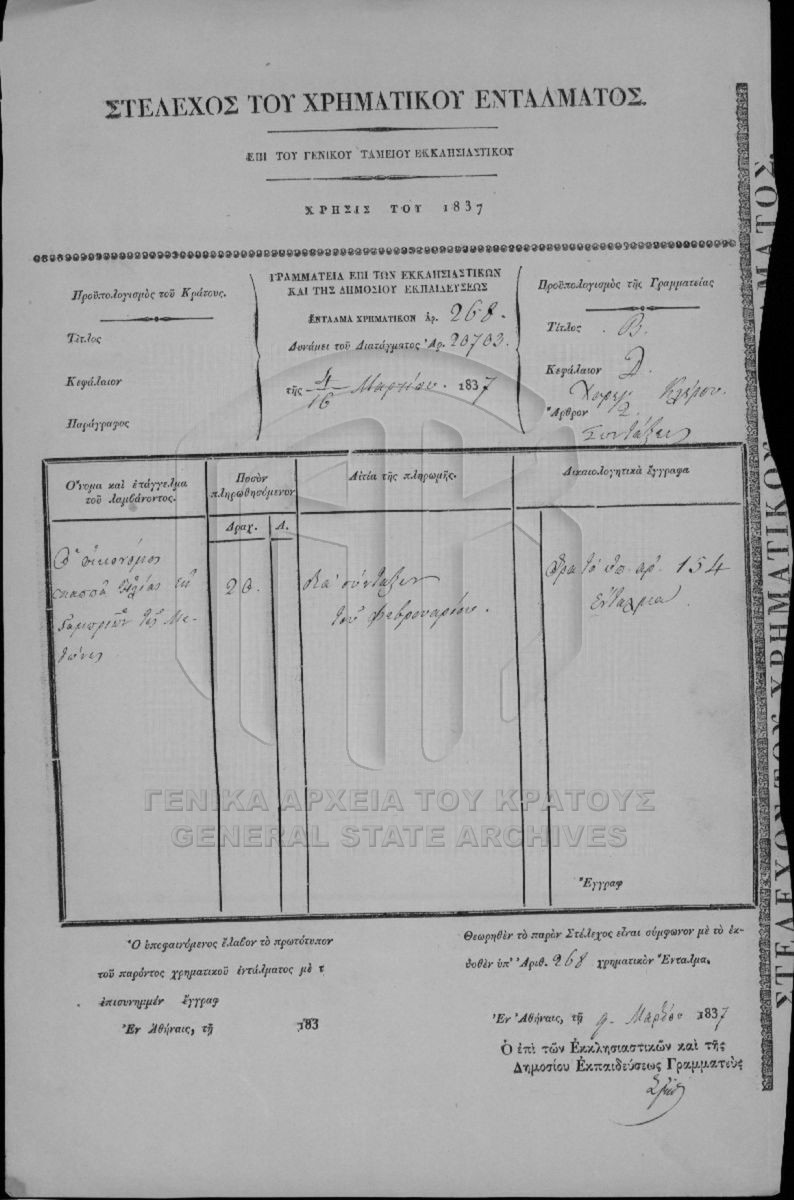 ΣΤΕΛΕΧΟΣ ΤΟΥ ΧΡΗΜΑΤΙΚΟΥ ΕΝΤΑΛΜΑΤΟΣ.
ΕΠΙ ΤΟΥ ΓΕΝΙΚΟΥ ΤΑΜΕΙΟΥ ΕΚΚΛΗΣΙΑΣΤΙΚΟΥ
ΧΡΗΣΙΣ ΤΟΥ 1837
Προϋπολογισμὸς τοῦ Κράτους.
Τίτλος
Κεφάλαιον
Παράγραφος
ΓΡΑΜΜΑΤΕΙΑ ΕΠΙ ΤΩΝ ΕΚΚΛΗΣΙΑΣΤΙΚΩΝ
ΚΑΙ ΤΗΣ ΔΗΜΟΣΙΟΥ ΕΚΠΑΙΔΕΥΣΕΩΣ
ΕΝΤΑΛΜΑ ΧΡΗΜΑΤΙΚΟΝ ἀρ. 268.
Δυνάμει τοῦ Διατάγματος Ἀρ. 20703.
τῆς 4/16 Μαρτίου. 1837
Προϋπολογισμὸς τῆς Γραμματείας
Τίτλος Β.
Κεφάλαιον Δ.
Κλήρου.
Ἄρθρον 2.
Συντάξεις
Ὄνομα καὶ ἐπάγγελμα
τοῦ λαμβάνοντος.
Ποσὸν
πληρωθησόμενον
Δραχ. Λ.
Αἰτία τῆς πληρωμῆς.
Δικαιολογητικὰ ἔγγραφα
Ὁ οἰκονόμος
παππᾶ Ἠλίας
τῆς Με-
θώνης
20.
διὰ σύνταξιν
τοῦ Φεβρουαρίου.
ὑπ. ἀρ. 154
ἔνταλμα.
Ἔγγραφ
Ὁ ὑπεφαινόμενος ἔλαβον τὸ πρωτότυπον
τοῦ παρόντος χρηματικοῦ ἐντάλματος μὲ τ
ἐπισυνημμέν ἔγγραφ
Ἐν Ἀθήναις, τῇ 183
Θεωρηθὲν τὸ παρὸν Στέλεχος εἶναι σύμφωνον μὲ τὸ ἐκ-
δοθὲν ὑπ' Ἀριθ. 268 χρηματικὸν Ἔνταλμα.
Ἐν Ἀθήναις, τῇ 9. Μαρτίου 1837
Ὁ ἐπὶ τῶν Ἐκκλησιαστικῶν καὶ τῆς
Δημοσίου Ἐκπαιδεύσεως Γραμματεὺς
ΣΤΕΛΕΧΟΣ ΤΟΥ ΧΡΗΜΑΤΙΚΟΥ
ΜΑΤΟΣ.
ΓΕΝΙΚΑ ΑΡΧΕΙΑ ΤΟΥ ΚΡΑΤΟΥΣ
GENERAL STATE ARCHIVES